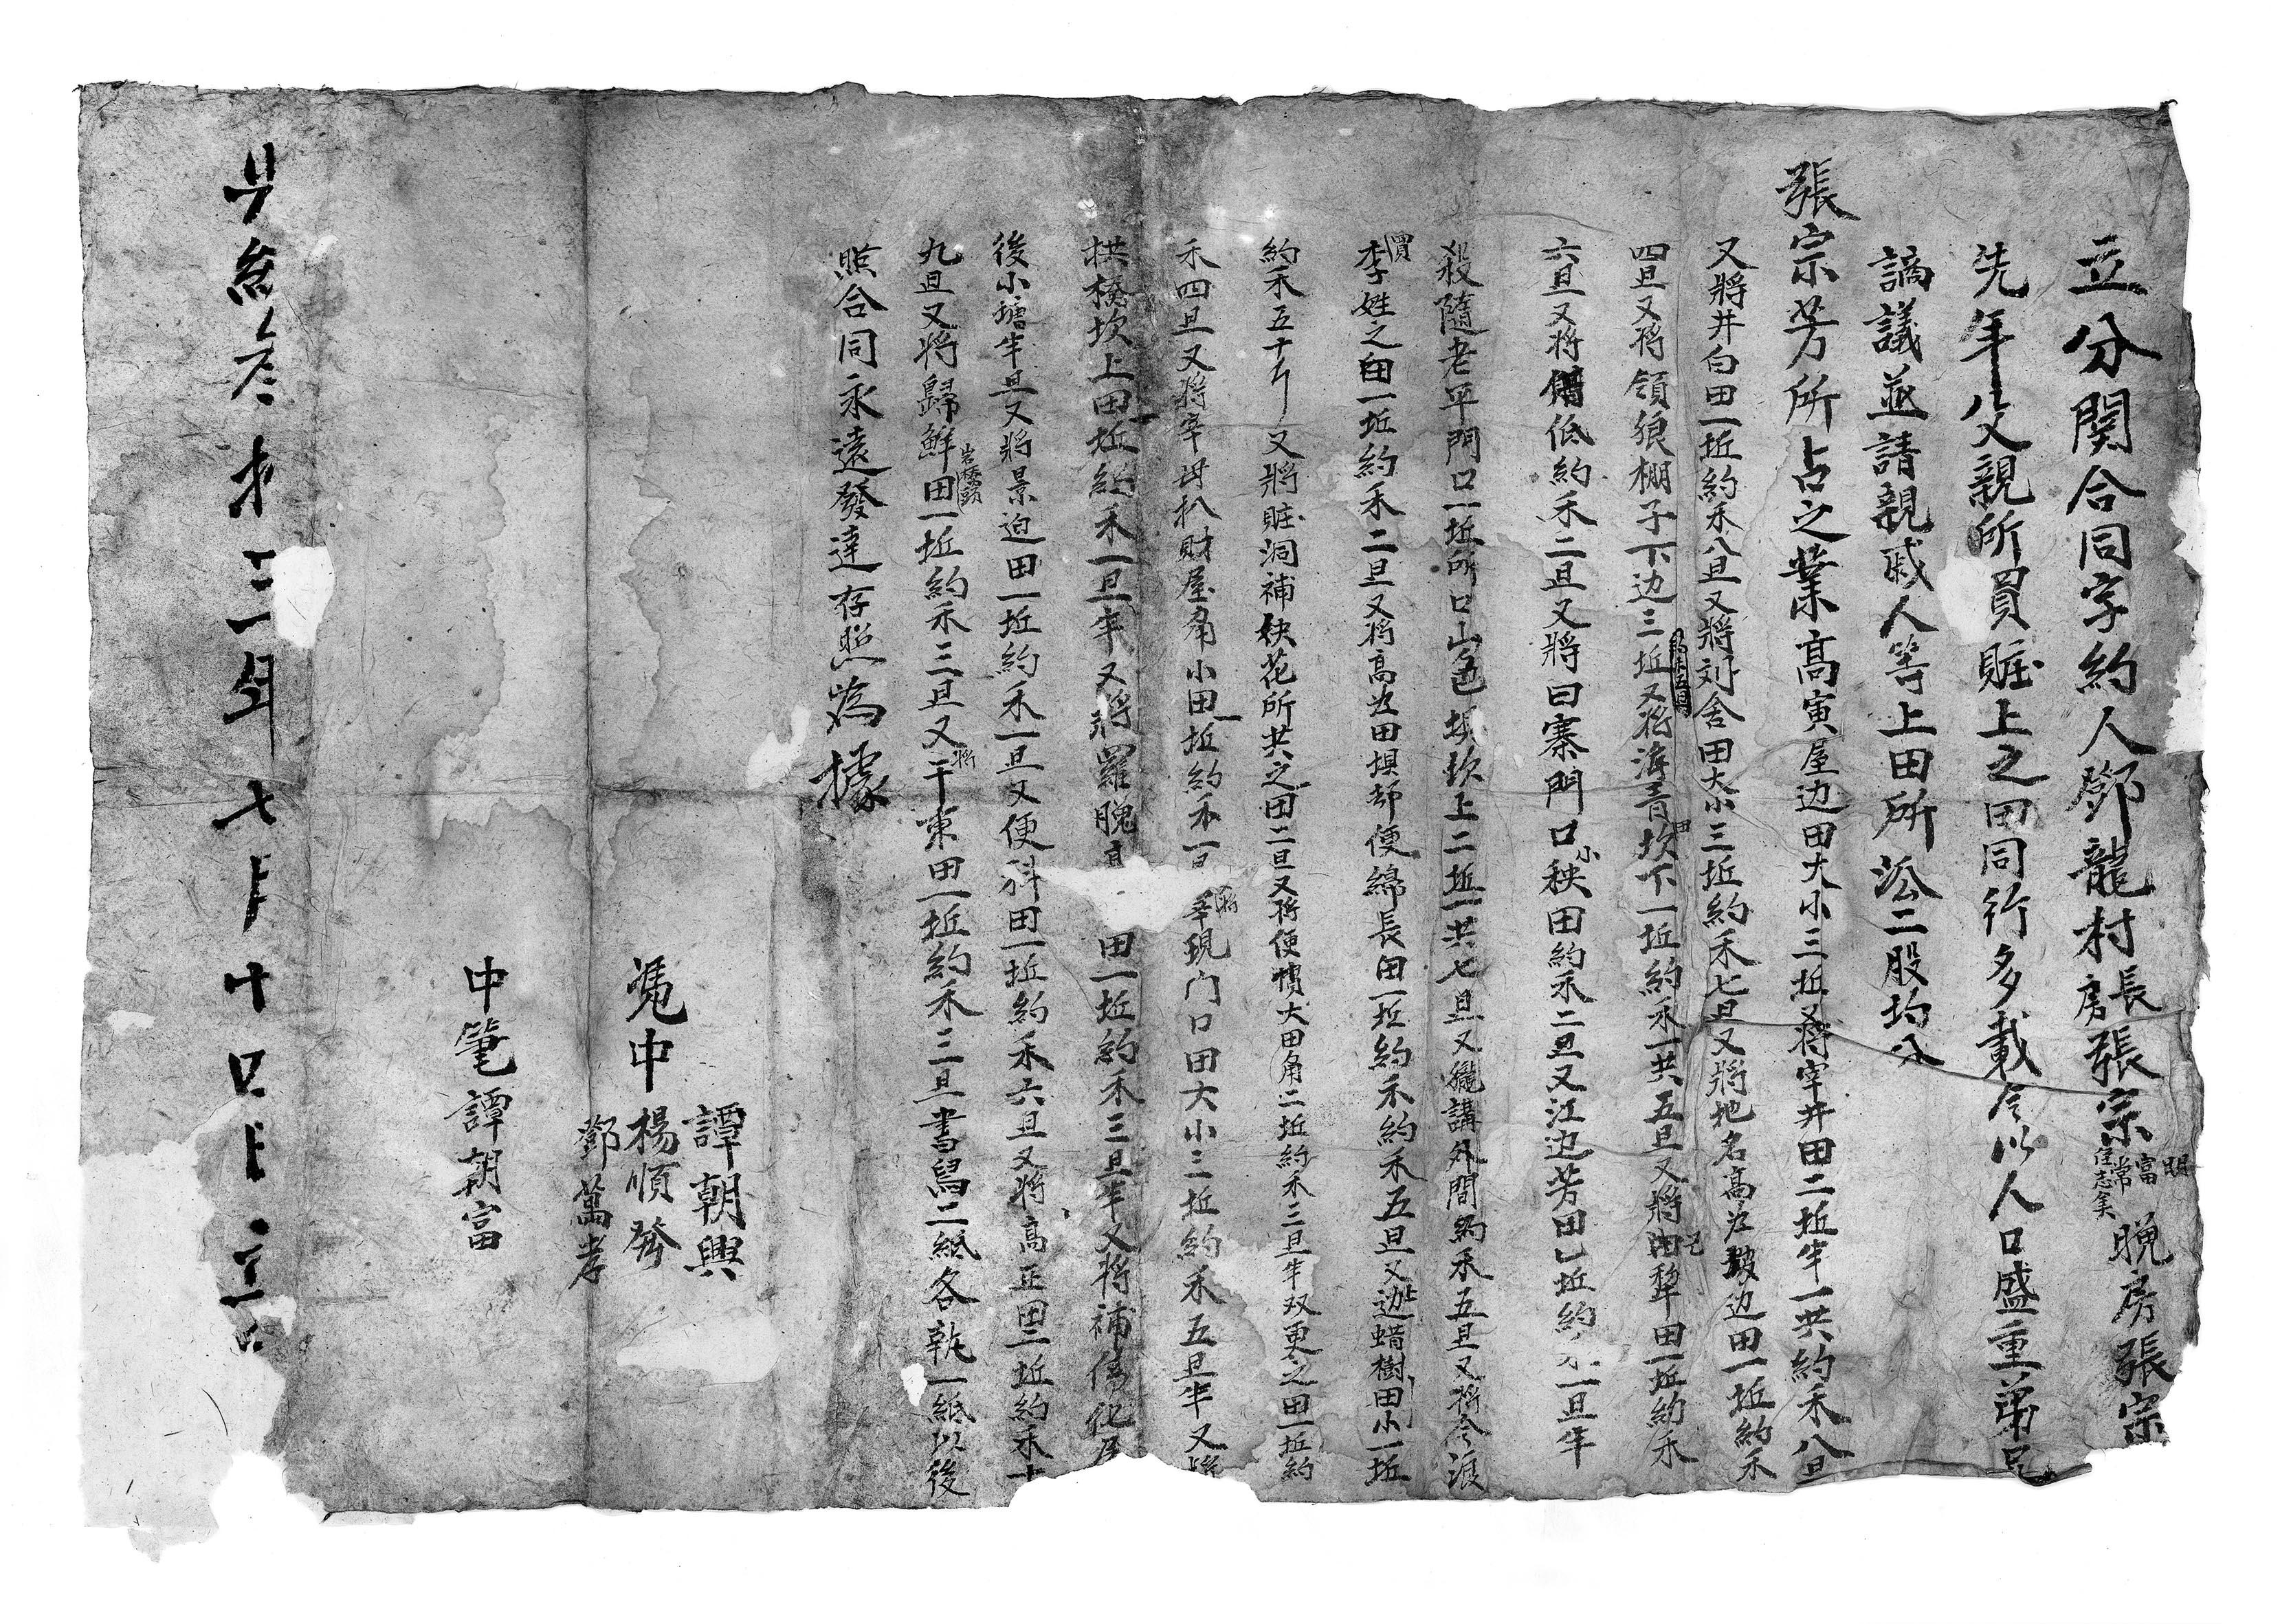 立分関合同字約人鄧龍村長房張宗明富常志美晚房張宗
先年父親所買賍上之田同行多載今以人口盛重弟兄
謫議並請親戚人等上田所沿二股均分
張宗芳所占之業高寅屋边田大小三坵又將宰井田二坵半一共約禾八旦
又將井白田一坵約禾八旦又將刘舍田大小三坵約禾七旦又將地名高為皷边田一坵約禾
四旦又將領狼棚子下边三坵約禾五旦又將海青田坎下一坵約禾一共五旦又將犂田一坵約禾
六旦又將低約禾二旦又將曰寨門口小秧田約禾二旦又江边芳田乚坵約禾一旦半
殺隨老平門口一坵所口山色垻坎上二坵一共七旦又巃講外間約禾五旦又將今渡
買李姓之田一坵約禾二旦又將高為田垻却便綿長田一坵約禾約禾五旦又蜡樹田小一坵
約禾五十斤又將賍洞補妜花所共之田二旦又將便懶大田角二坵約禾三旦半双更之田一坵約
禾四旦又將宰毋扒財屋角小田一坵約禾一旦將宰現门口田大小三坵約禾五旦半又將
拱橋坎上田一坵約禾一旦半又將羅䐴田一坵約禾三旦半又將補偽化
後小塘半旦又將景迫田一坵約禾一旦又便科田一坵約禾六旦又將高正田二坵約禾十
九旦又將歸鮮岩橋頭田一坵約禾三旦又將干東田一坵約禾三旦書寫二紙各執一紙以後
照合同永遠發達存照為據
譚朝興
憑中楊順發
鄧萬孝
中筆譚朝富
三年七月十